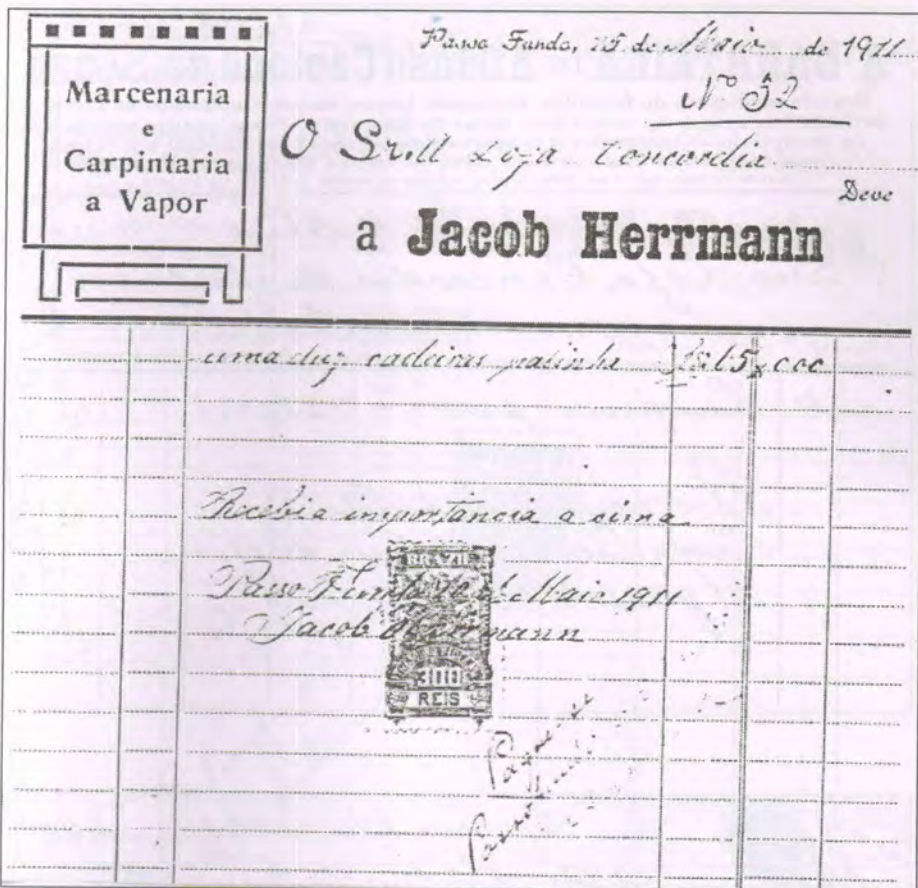 Marcenaria
e
Carpintaria
a Vapor
Passo Fundo, 15 de Maio de 1911
Nº 32
O Snr Liga Concordia
Deve
a Jacob Herrmann
uma duz cadeiras palinha 65 000
Recebi a importancia a cima
BRAZIL
Passo Fundo de Maio 1911
Jacob Herrmann
REIS